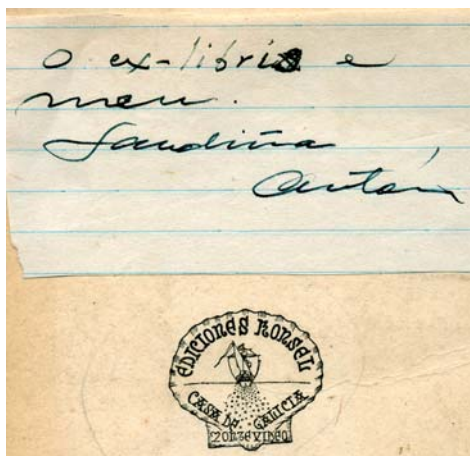 O ex-libris e
meu.
Saudiña
Antón
EDICIONES RONSEL
CASA DE GALICIA
MONTEVIDEO